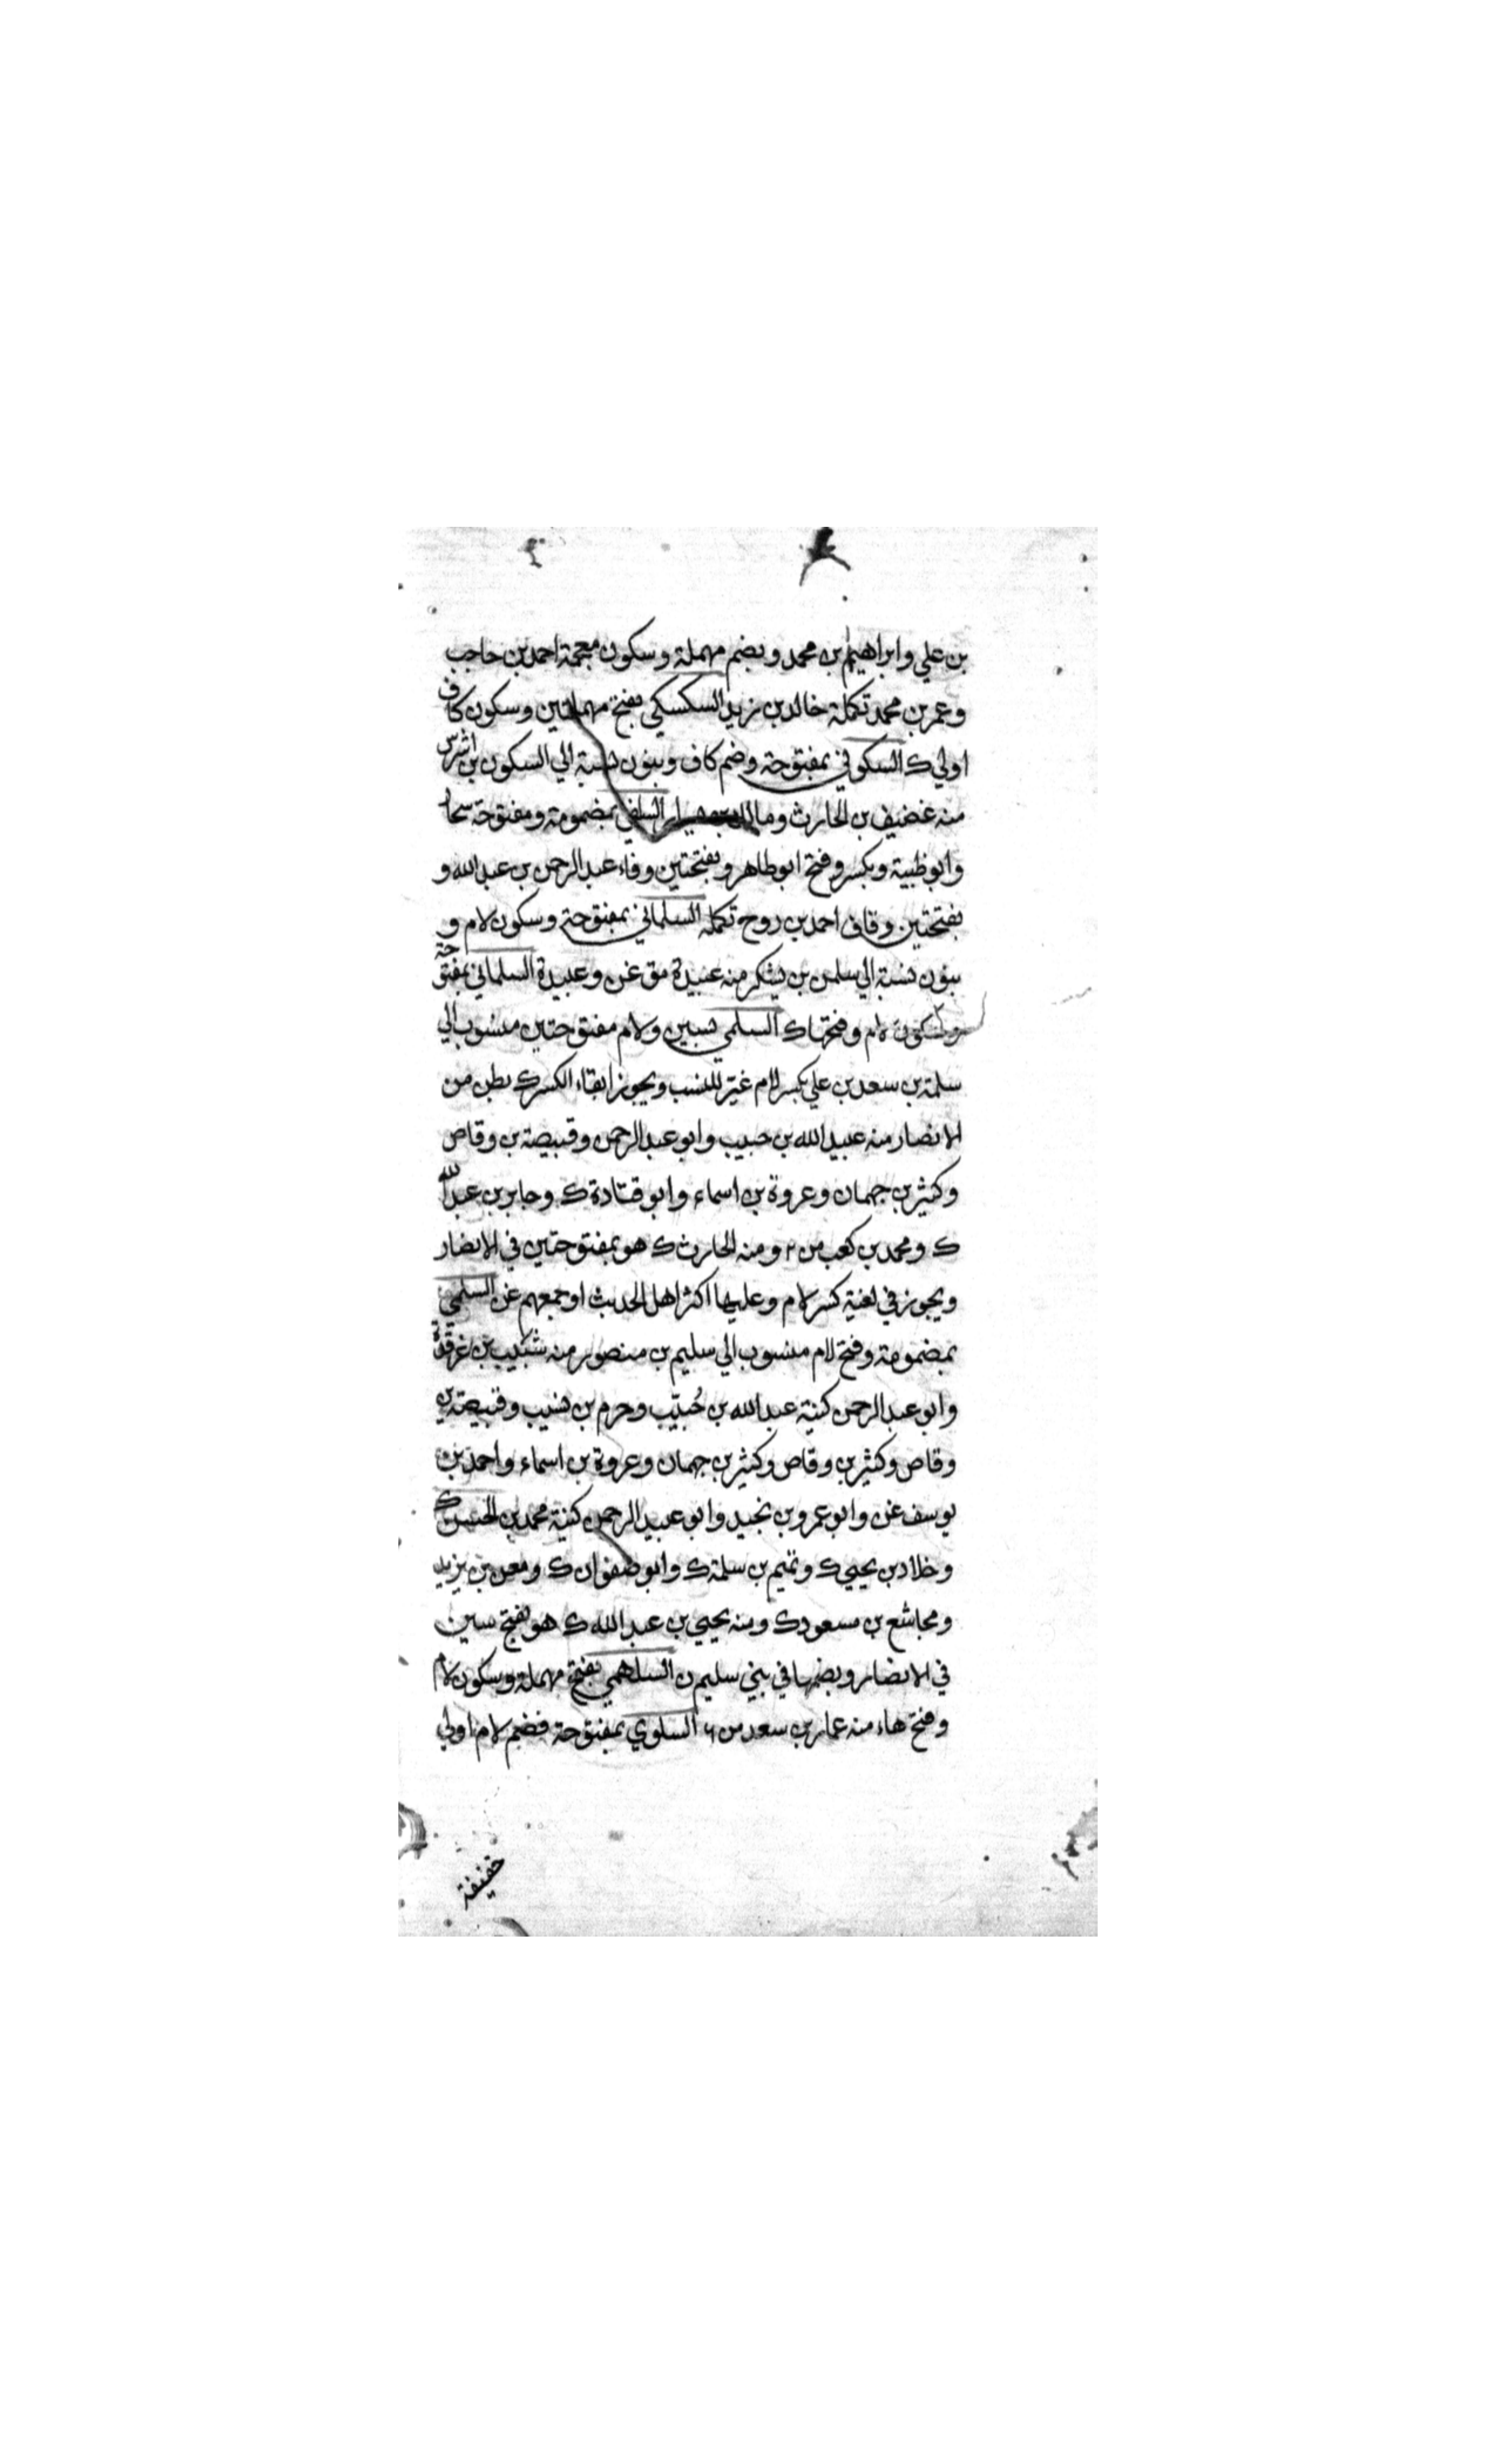 بن علي وابراهيم بن محمد وبضم مهملة وسكون معجمة احمد بن حاجب
وعمر بن محمد تكملة خالد بن يزيد السكسكي بفتح مهملتين وسكون كاف
اولي ك السكوني بمفتوحة وضم كاف وبنون نسبة الي السكون بن اشرس
منه غضيف بن الحارث ومالك بن السلفي بمضمومة ومفتوحة
وابوظبية وبكسر وفتح ابوطاهر وبفتحتين وفاء عبد الرحمن بن عبد الله و
بفتحتين وقاف احمد بن روح تكملة السلماني بمفتوحة وسكون لام و
بنون نسبة الي سلمن بن يشكر منه عبيدة مق غن وعبيدة السلماني بمفتوحة
وسكون لام وفتحها ك السلمي بسين ولام مفتوحتين منسوب الي
سلمة بن سعد بن علي بكسر لام غير للنسب ويجوز ابقاء الكسر ك بطن من
الانصار منه عبيد الله بن حبيب وابو عبد الرحمن وقبيصة بن وقاص
وكثير بن جهمان وعروة بن اسماء وابو قتادة ك وجابر بن عبد الله
ك ومحمد بن كعب من م ومنه الحارث ك هو بمفتوحتين في الانصار
ويجوز في لغية كسر لام وعليها اكثر اهل الحديث او جمعهم غن السلمي
بمضمومة وفتح لام منسوب الي سليم بن منصور منه شبيب بن غرقدة
وابو عبد الرحمن كنية عبد الله بن حُبيّب وحرم بن نسيب وقبيصة بن
وقاص وكثير بن وقاص وكثير بن جهمان وعروة بن اسماء واحمد بن
يوسف غن وابو عمرو بن نجيد وابو عبيد الرحمن كنية محمد بن الحسن ك
وخلاد بن يحيي ك وتميم بن سلمة ك وابو صفوان ك ومعن بن يزيد
ومجاشع بن مسعود ك ومنه يحيي بن عبد الله ك هو بفتح سين
في الانصار وبضمها في بني سليم ن السلهمي بفتح مهملة وسكون لام
وفتح هاء منه عمار بن سعد من ٦ السلوي بمفتوحة فضم لام اولي
خفيفة